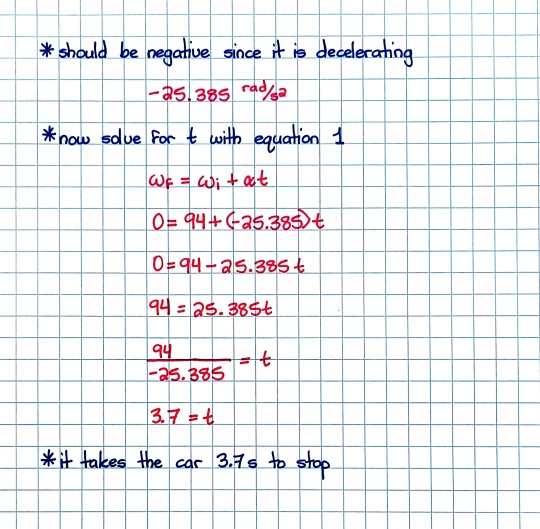 * should be negative since it is decelerating
-25.385 rad/s2
* now solve for t with equation 1
ωF = ωi + αt
0 = 94 + (-25.385)t
0 = 94 - 25.385t
94 = 25.385t
94/-25.385 = t
3.7 = t
* it takes the car 3.7s to stop